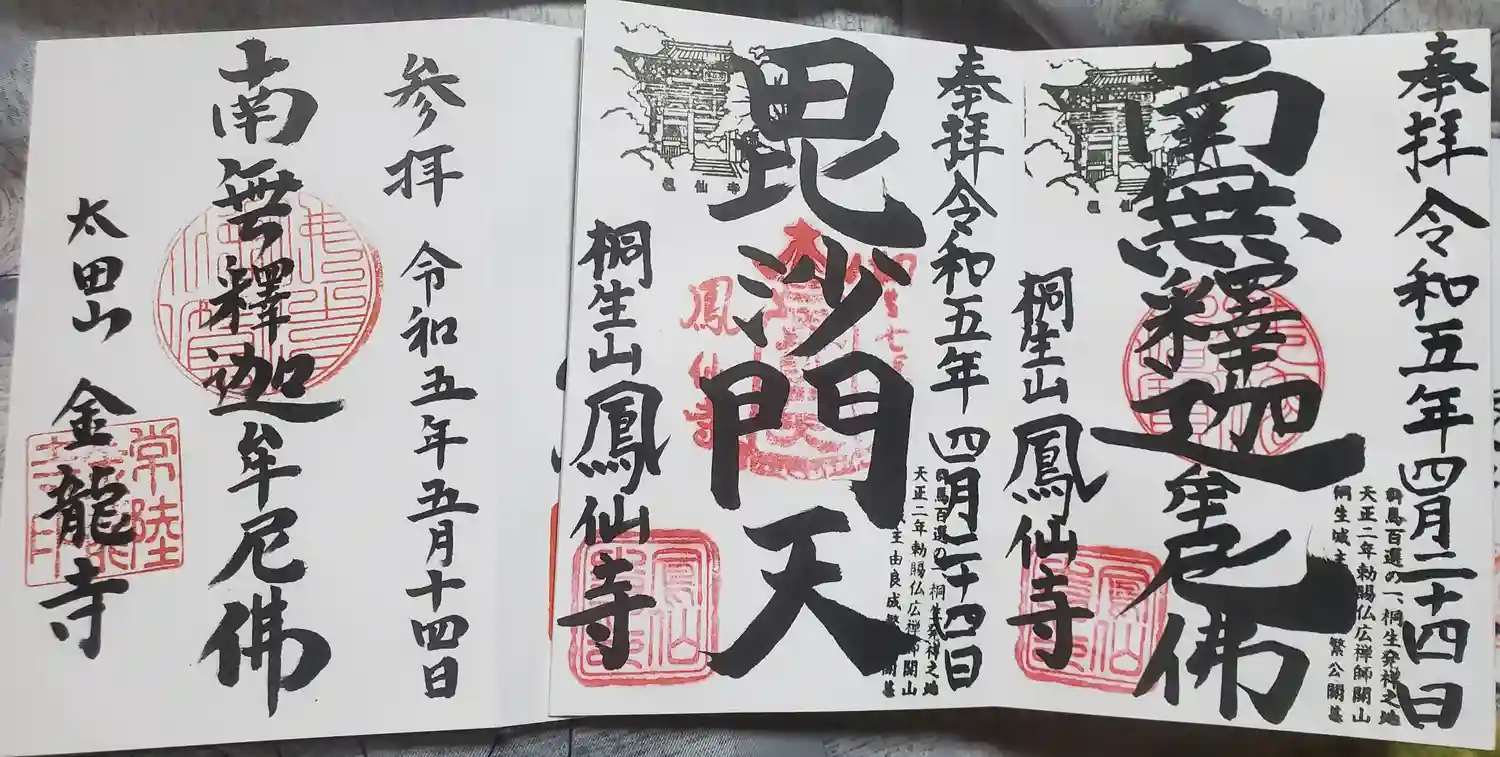 奉拝 令和五年四月二十四日
群馬百選の一、桐生発祥之地
天正二年勅賜仏広禅師開山
桐生城主
繁公開基
南無釋迦牟尼佛
桐生山 鳳仙寺
奉拝 令和五年 四月二十四日
群馬百選の一、桐生発祥之地
天正二年勅賜仏広禅師開山
主由良成繁
開基
毘沙門天
鳳仙寺
桐生山 鳳仙寺
参拝 令和五年五月十四日
南無釋迦牟尼佛
太田山 金龍寺
常陸